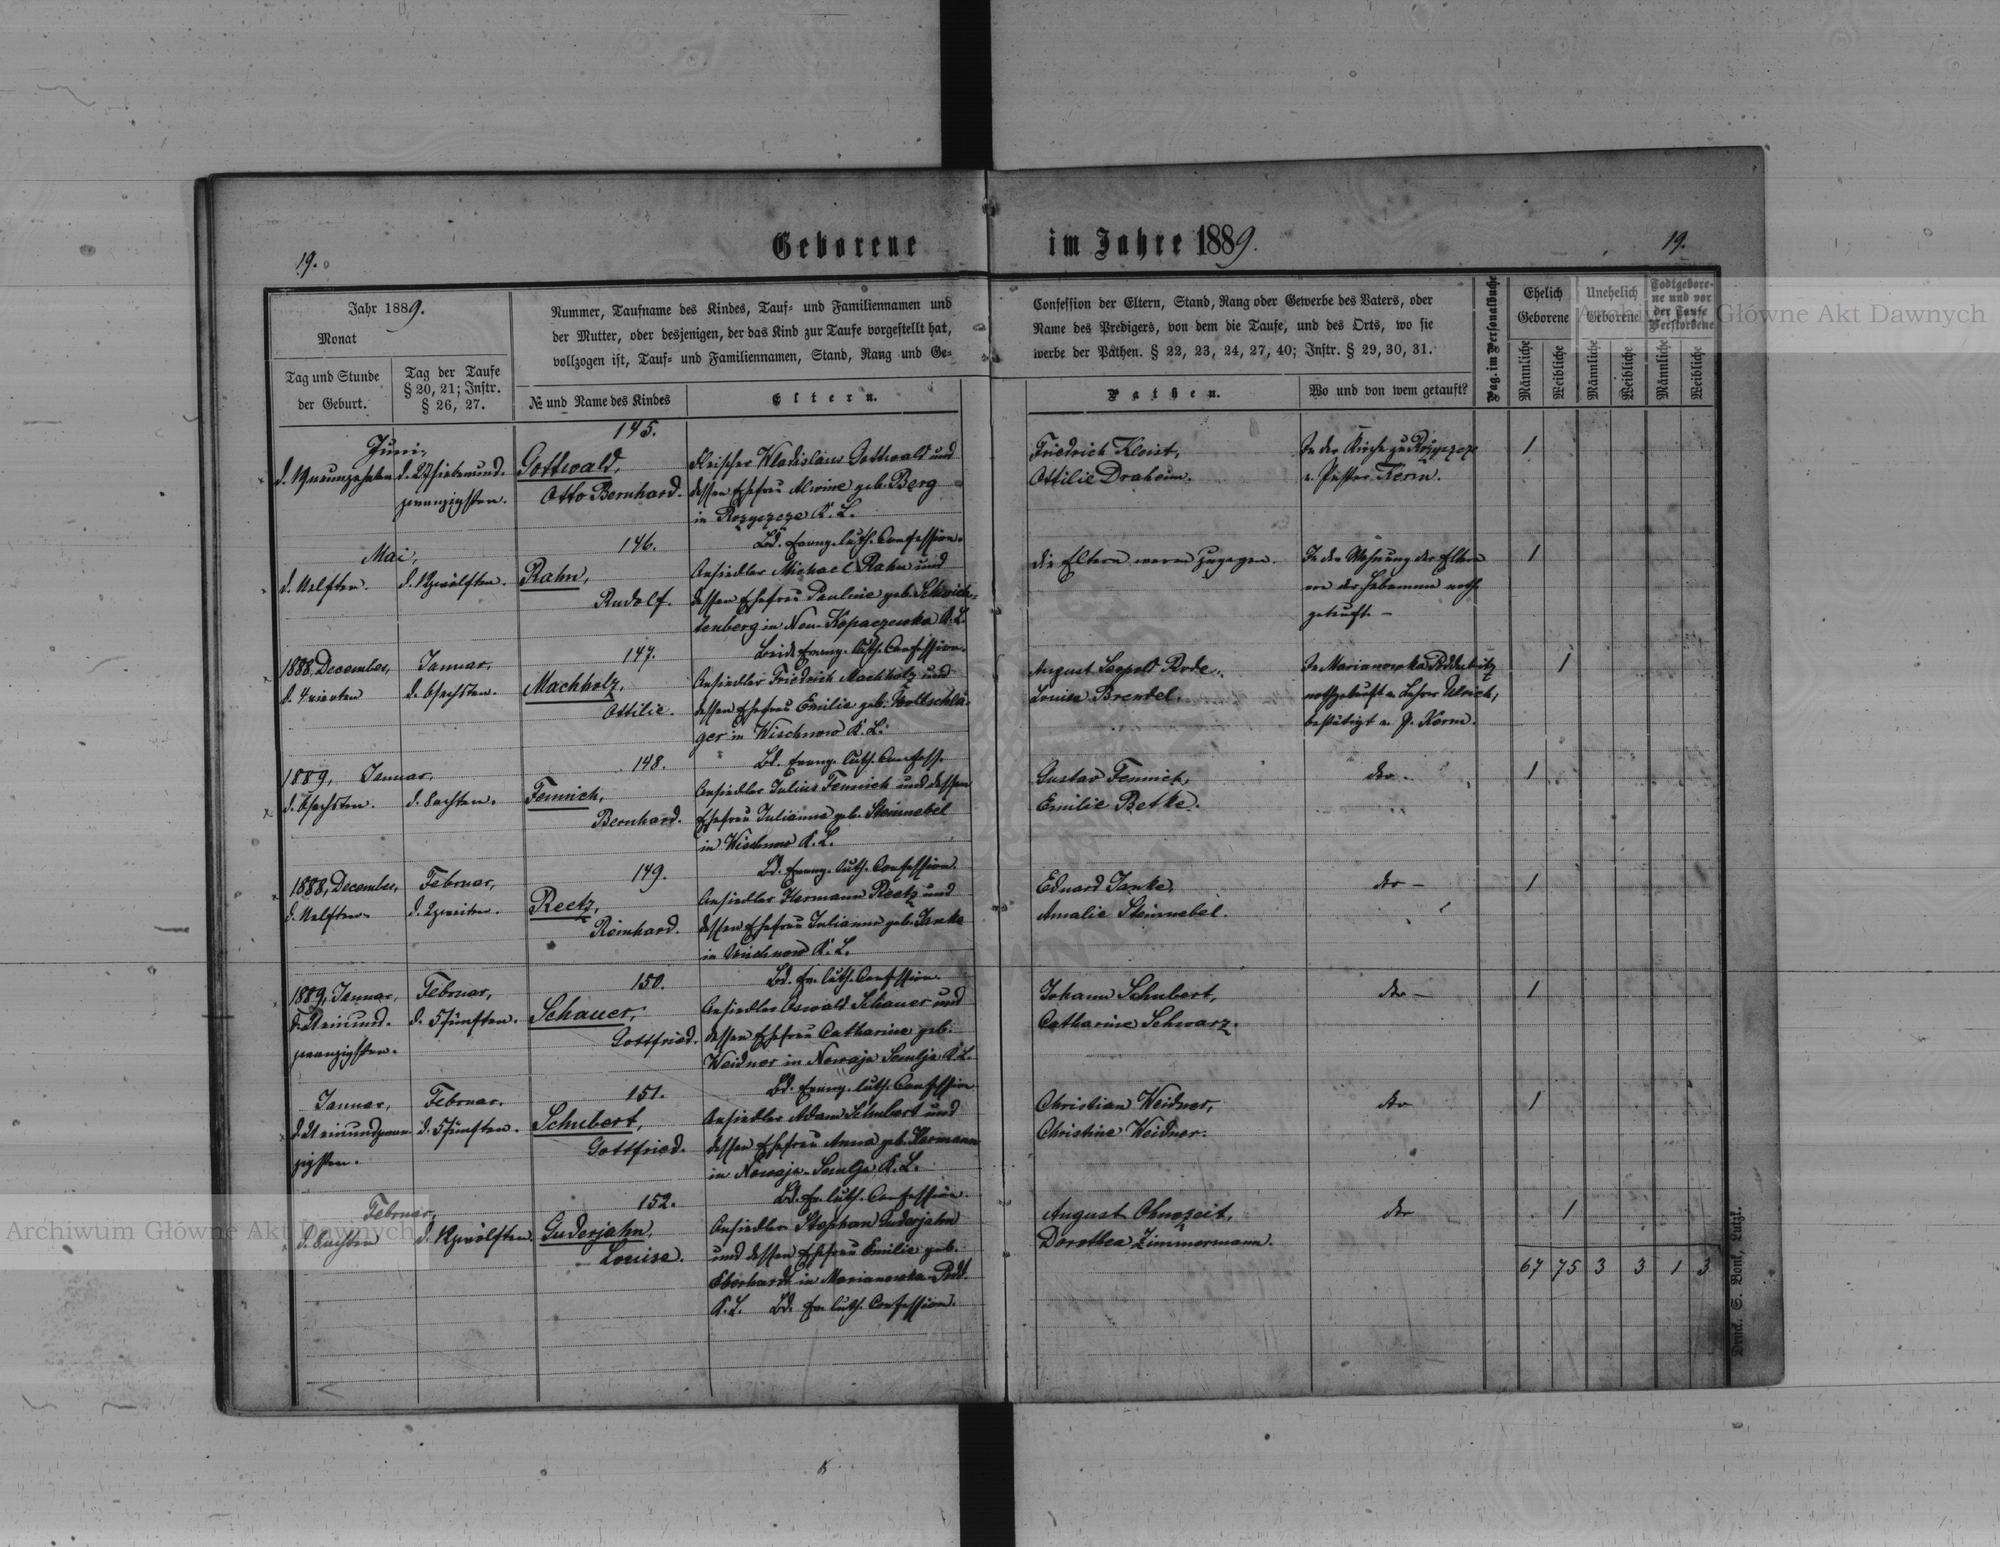 19.
Geborene im Jahre 1889.
19.
Jahr 1889.
Monat
Tag und Stunde
der Geburt.
Tag der Taufe
§ 20, 21; Instr.
§ 26, 27.
Nummer, Taufname des Kindes, Tauf- und Familiennamen und
der Mutter, oder desjenigen, der das Kind zur Taufe vorgestellt hat,
vollzogen ist, Tauf- und Familiennamen, Stand, Rang und Ge-
№ und Name des Kindes
Eltern.
Confession der Eltern, Stand, Rang oder Gewerbe des Vaters, oder
Name des Predigers, von dem die Taufe, und des Orts, wo sie
werbe der Pathen. § 22, 23, 24, 27, 40; Instr. § 29, 30, 31.
Pathen.
Wo und von wem getauft?
Pag. im Personalbuche
Ehelich
Geborene
Unehelich
Geborene
Todtgebore-
ne und vor
der Taufe
Verstorbene
Männliche
Weibliche
Männliche
Weibliche
Männliche
Weibliche
Juni,
d. 19 neunzehnten
d. 27 siebenund-
zwanzigsten.
145.
Gottwald,
Otto Bernhard.
Fleischer Wladislaus Gottwald und
dessen Ehefrau Alwine geb. Berg
in Rozyszcze K. L.
Bd. Evang. luth. Confession.
Friedrich Kleist,
Ottilie Draheim.
In der Kirche zu Rozyszcze
v. Pastor Kerm.
1
Mai,
d. 11 elften.
d. 12 zwölften.
146.
Rahn,
Rudolf.
Ansiedler Michael Rahn und
dessen Ehefrau Pauline geb. Schwich-
tenberg in Neu-Kopaczewka K. L.
Beide Evang. luth. Confession.
die Eltern waren zugegen.
In der Wohnung der Eltern
von der Hebamme noth-
getauft.
1
1888, December,
d. 4 vierten
Januar,
d. 6 sechsten.
147.
Machholz,
Ottilie.
Ansiedler Friedrich Machholz und
dessen Ehefrau Emilie geb. Holtschlä-
ger in Wischnow K. L.
Bd. Evang. luth. Confess.
August Leopold Rode,
Louise Brendel.
In Marianowka
nothgetauft v. Lehrer Ulrich,
bestätigt v. P. Kerm.
1
1889, Januar,
d. 6 sechsten.
d. 8 achten.
148.
Fennich,
Bernhard.
Ansiedler Julius Fennich und dessen
Ehefrau Julianna geb. Steinnebel
in Wischnow K. L.
Bd. Evang. luth. Confession.
Gustav Fennich,
Emilie Betke.
dto
1
1888, December,
d. 11 elften.
Februar,
d. 2 zweiten.
149.
Reetz,
Reinhard.
Ansiedler Hermann Reetz und
dessen Ehefrau Julianna geb. Janke
in Wischnow K. L.
Bd. Ev. luth. Confession.
Eduard Janke,
Amalie Steinnebel.
dto
1
1889, Januar,
d. 21 einund-
zwanzigsten.
Februar,
d. 5 fünften.
150.
Schauer,
Gottfried.
Ansiedler Oswald Schauer und
dessen Ehefrau Catharine geb.
Weidner in Nowaja Semlja K. L.
Bd. Evang. luth. Confession
Johann Schubert,
Catharine Schwarz.
dto
1
Januar,
d. 21 einundzwan-
zigsten.
Februar.
d. 5 fünften.
151.
Schubert,
Gottfried.
Ansiedler Adam Schubert und
dessen Ehefrau Anna geb. Hermann
in Nowaja-Semlja K. L.
Bd. Ev. luth. Confession.
Christian Weidner,
Christine Weidner.
dto
1
Februar,
d. 8 achten
d. 12 zwölften.
152.
Guderjahn,
Louise.
Ansiedler Stephan Guderjahn
und dessen Ehefrau Emilie geb.
Eberhardt in Marianowka-Podd.
K. L. Bd. Ev. luth. Confession.
August Ohnezeit,
Dorothea Zimmermann.
dto
1
67 75 3 3 1 3
Archiwum Główne Akt Dawnych
Archiwum Główne Akt Dawnych